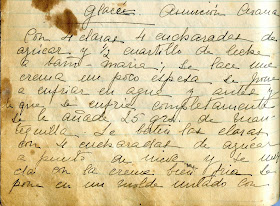 Glacer. Asunción Arana
Con 4 claras 4 encharadas de
azucar y ½ cuartillo de leche
a baño-maria; se hace una
crema un poco espesa se pone
a enfriar en agua y antes
que se enfrie completamente
se le añade 25 grs. de man
tequilla. Se baten las claras
con 4 encharadas de azucar
a punto de nieve y se mez
cla con la crema bien fria se
pone en un molde untado con